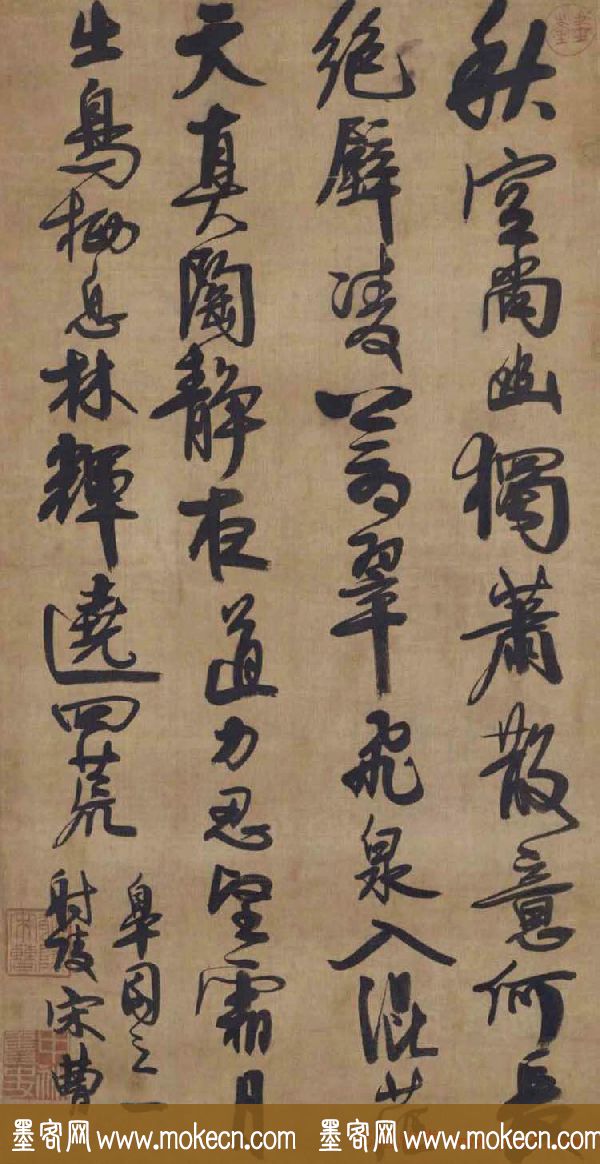 秋空尚幽獨蕭散意何長
絕壁凌蒼翠飛泉入混茫
天真靜道力忍望霜月
出鳥栖息林輝遶四荒
皐園之一
射陵宋曹
墨客网 www.mokecn.com 墨客网 www.mokecn.com